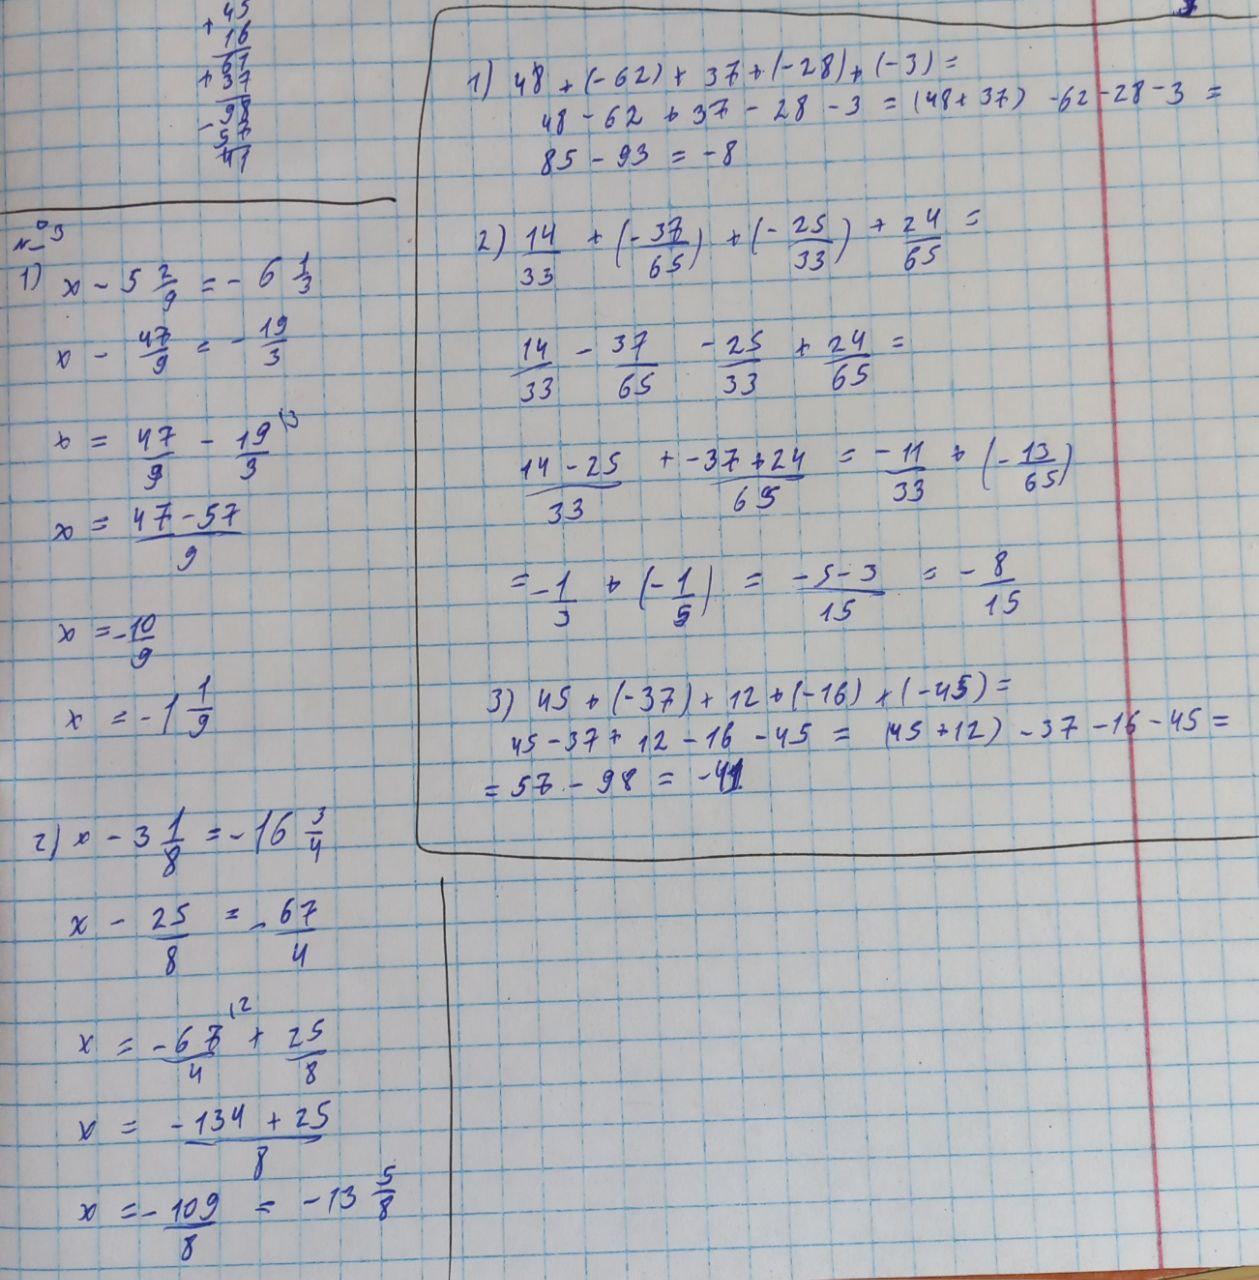 + 45
16
61
+ 37
98
- 57
41
№3
1) x - 5 2/9 = - 6 1/3
x - 47/9 = - 19/3
x = 47/9 - 19/3 \3
x = 47 - 57 / 9
x = - 10/9
x = - 1 1/9
2) x - 3 1/8 = - 16 3/4
x - 25/8 = - 67/4
x = - 67/4 \2 + 25/8
x = - 134 + 25 / 8
x = - 109/8 = - 13 5/8
1) 48 + (-62) + 37 + (-28) + (-3) =
48 - 62 + 37 - 28 - 3 = (48 + 37) - 62 - 28 - 3 =
85 - 93 = -8
2) 14/33 + (- 37/65) + (- 25/33) + 24/65 =
14/33 - 37/65 - 25/33 + 24/65 =
14 - 25 / 33 + -37 + 24 / 65 = - 11/33 + (- 13/65)
= - 1/3 + (- 1/5) = -5 - 3 / 15 = - 8/15
3) 45 + (-37) + 12 + (-16) + (-45) =
45 - 37 + 12 - 16 - 45 = (45 + 12) - 37 - 16 - 45 =
= 57 - 98 = -41